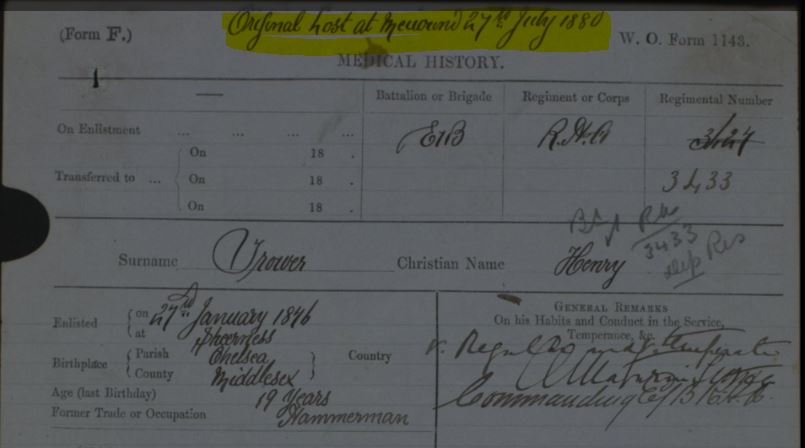 Original Lost at Meiwund 27th July 1880
(Form F.)
W. O. Form 1143.
MEDICAL HISTORY.
1
Battalion or Brigade
Regiment or Corps
Regimental Number
On Enlistment ... ... ... ...
E/B
R.H.A
On 18 .
Transferred to ... On 18 .
3433
On 18 .
3433
Res
Surname Trower Christian Name Henry
Enlisted on 27 January 1876
at Sheerness
Birthplace Parish Chelsea
County Middlesex
Country
Age (last Birthday) 19 Years
Former Trade or Occupation Hammerman
GENERAL REMARKS
On his Habits and Conduct in the Service,
Temperance, &c.
v. Regular and temperate
Commanding E/B R.H.A.